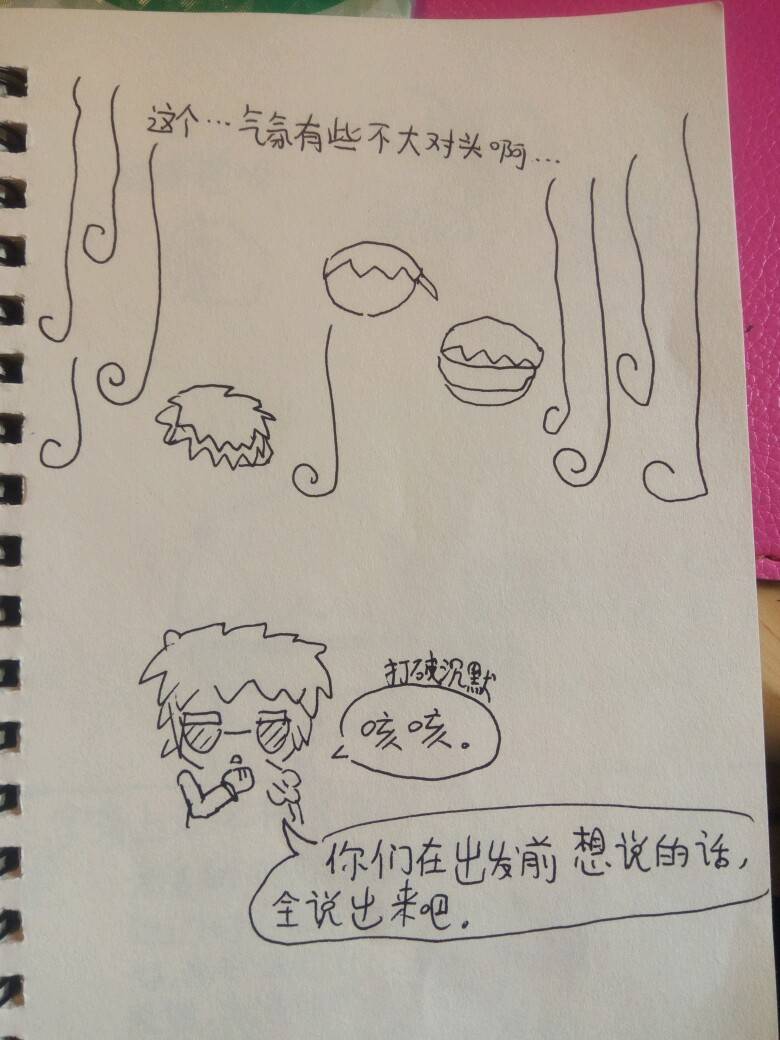 这个…气氛有些不大对头啊…
打破沉默
咳咳。
你们在出发前想说的话，
全说出来吧.